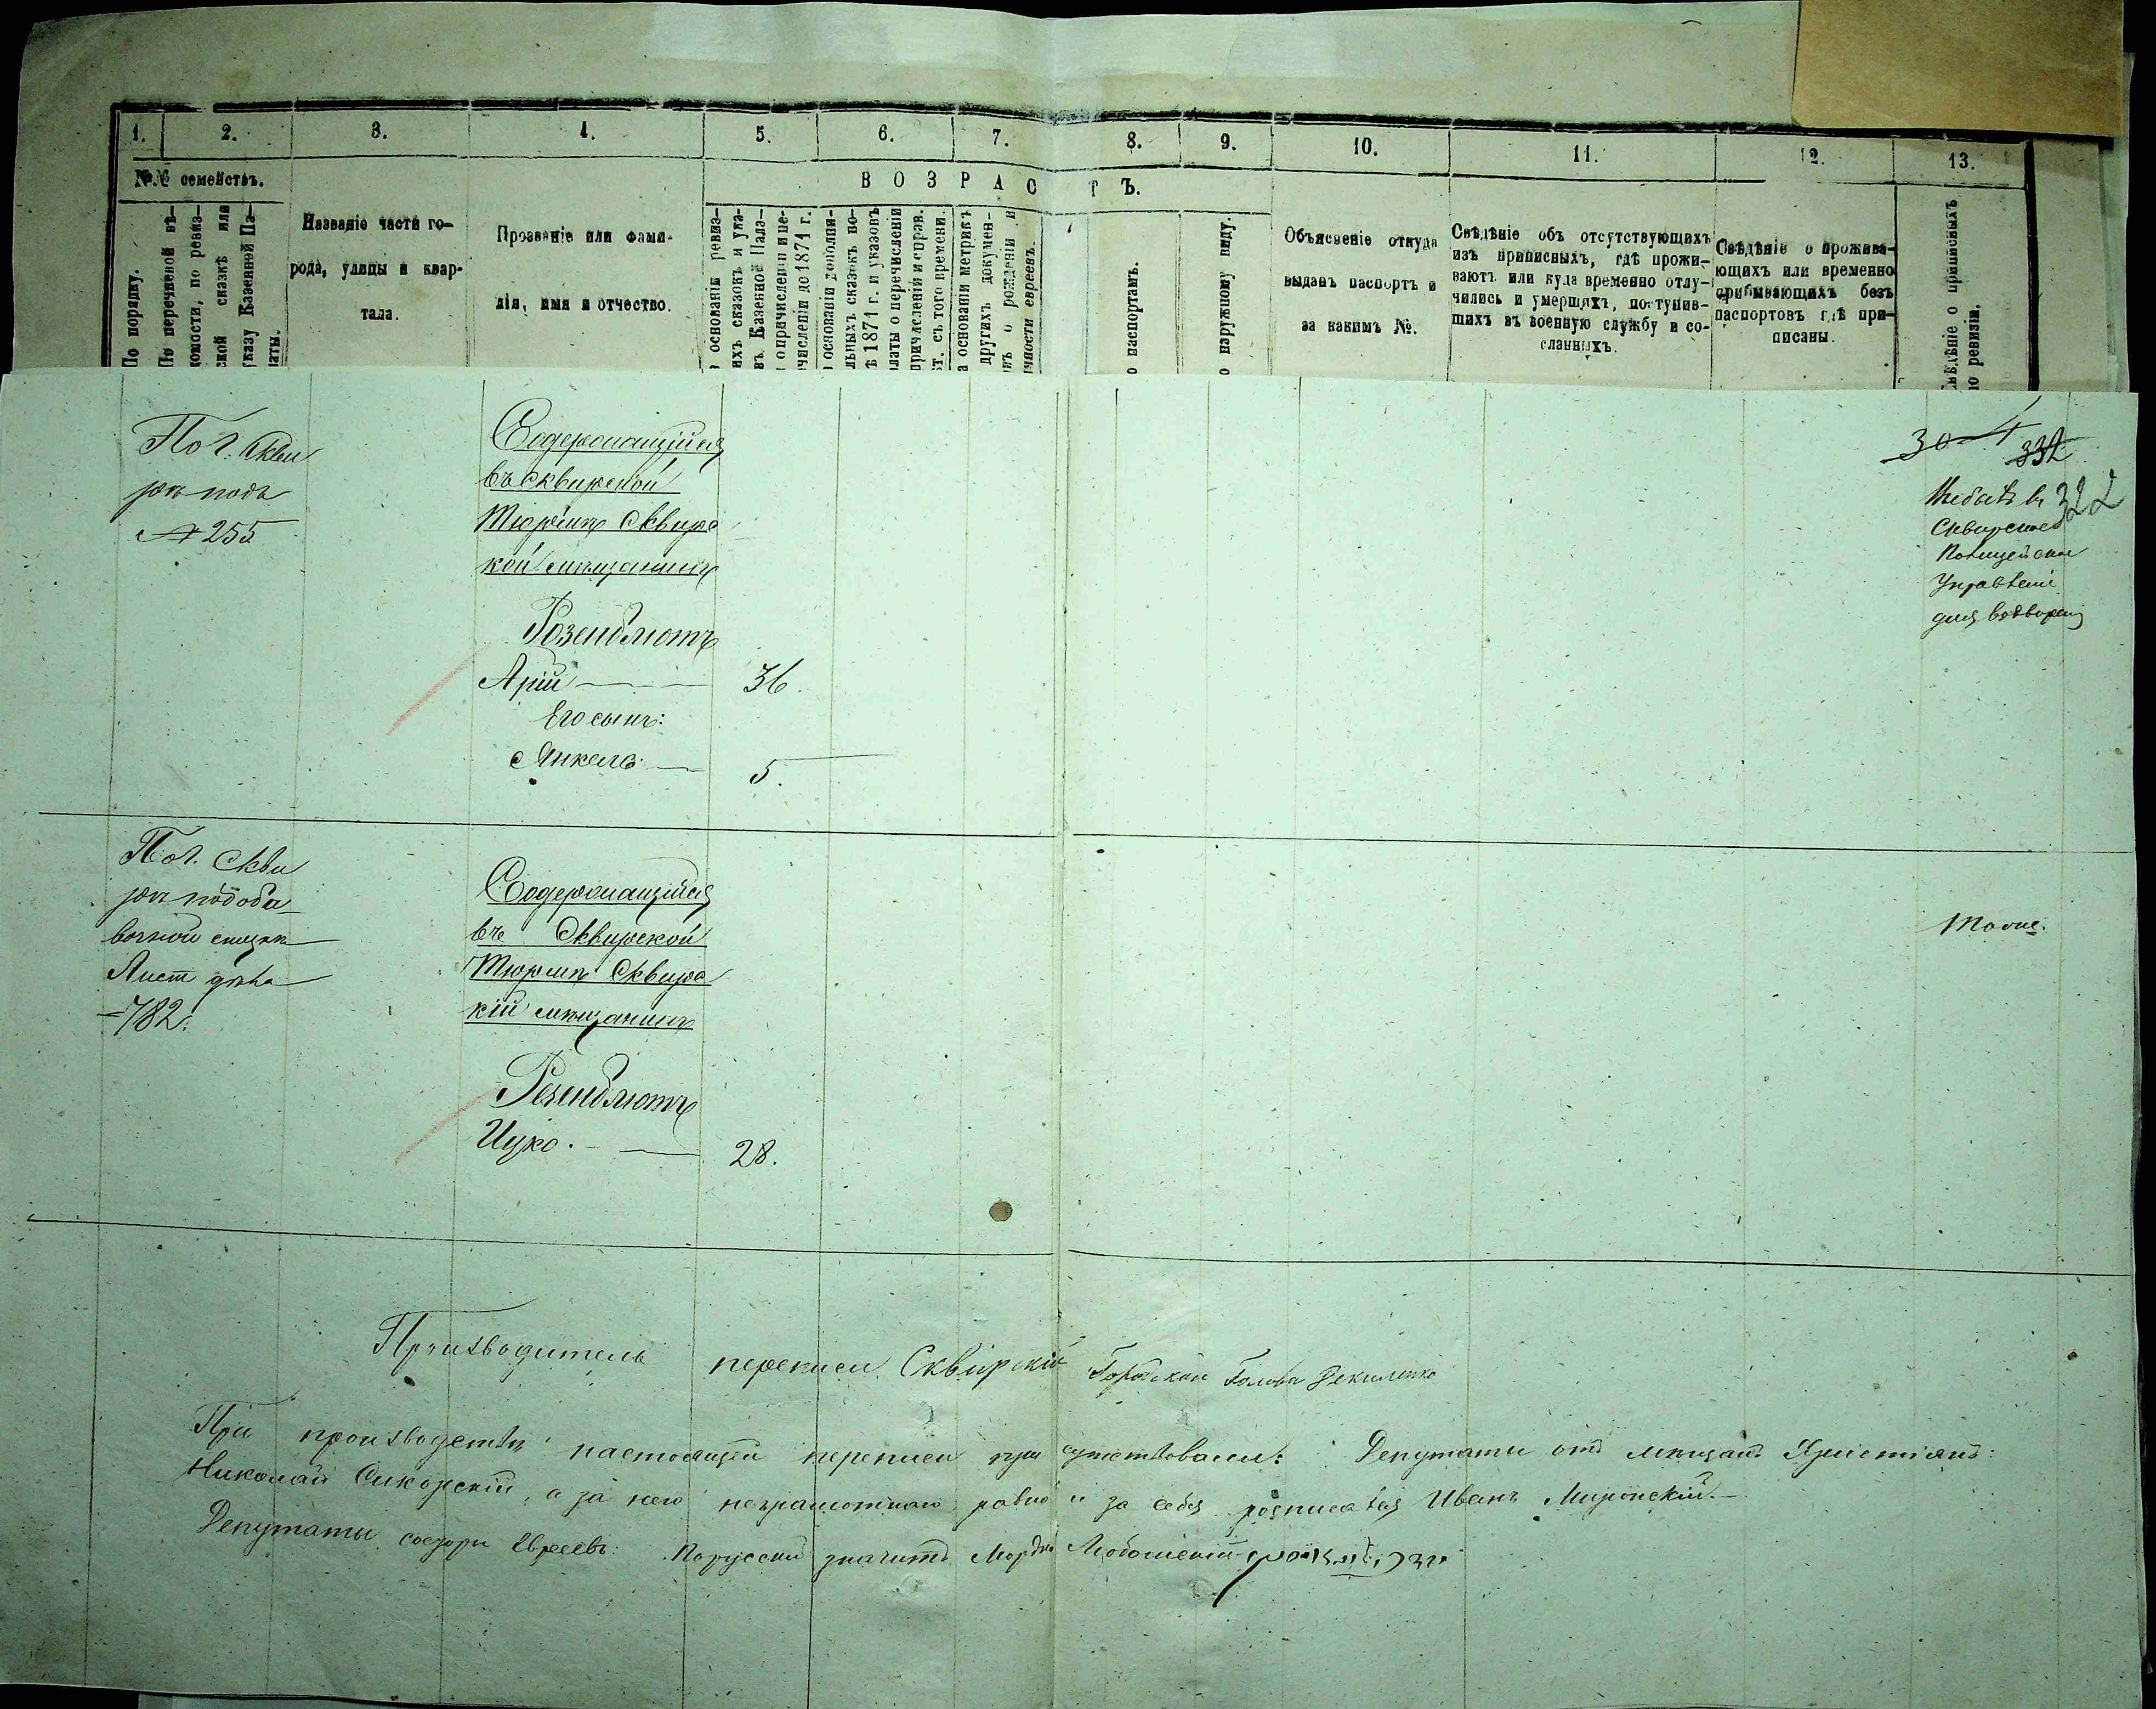 1. 2. 3. 4. 5. 6. 7. 8. 9. 10. 11. 12. 13.
№№ семействъ.
В О З Р А С Т Ъ.
По порядку.
По перечневой вѣ-
домости, по ревиз-
ской сказкѣ или
указу Казенной Па-
латы.
Названіе части го-
рода, улицы и квар-
тала.
Прозваніе или фами-
лія, имя и отчество.
основаніи ревиз-
ихъ сказокъ и ука-
въ Казенной Пала-
о причисленіи и пе-
численіи до 1871 г.
основаніи дополни-
льныхъ сказокъ по-
ѣ 1871 г. и указовъ
латы о перечисленіи
причисленій и справ.
ст. съ того времени.
а основаніи метрикъ
другихъ докумен-
въ о рожденіи и
ичности евреевъ.
о паспортамъ.
о наружному виду.
Объясненіе откуда
выданъ паспортъ и
за какимъ №.
Свѣдѣніе объ отсутствующихъ
изъ приписныхъ, гдѣ прожи-
ваютъ или куда временно отлу-
чились и умершихъ, поступив-
шихъ въ военную службу и со-
сланныхъ.
Свѣдѣніе о прожива-
ющихъ или временно
прибывающихъ безъ
паспортовъ гдѣ при-
писаны.
Свѣдѣніе о приписныхъ
по ревизіи.
По г. Скви
рѣ подъ
№ 255
Содержащійся
въ Сквирской
Тюрьмѣ Сквирс
кой мѣщанинъ
Розенблютъ
Арій — 36.
Его сынъ:
Янкель — 5.
30
332
322
въ
Сквирское
Полицейское
Управленіе
для водворенія
По г. Скви
рѣ по доба
вочной сказкѣ
Лист дѣла
782.
Содержащійся
въ Сквирской
Тюрьмѣ Сквирс
кій мѣщанинъ
Розенблютъ
Ицко. — 28.
Тоже.
Производитель переписи Сквирскій Городской Голова
При производствѣ настоящей переписи присутствовали: Депутаты отъ мѣщанъ Христіанъ:
Николай Сикорскій, а за него неграмотнаго равно и за себя росписался Иванъ Миронскій.—
Депутаты со стороны Евреевъ: По русски значитъ Мордко